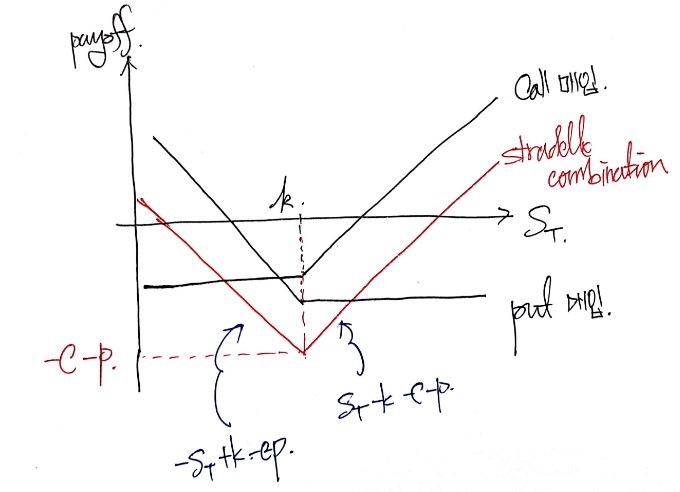 payoff.
Call 매입.
straddle
combination
k.
S_T.
put 매입.
-C-p.
S_T-k-c-p.
-S_T+k-c-p.